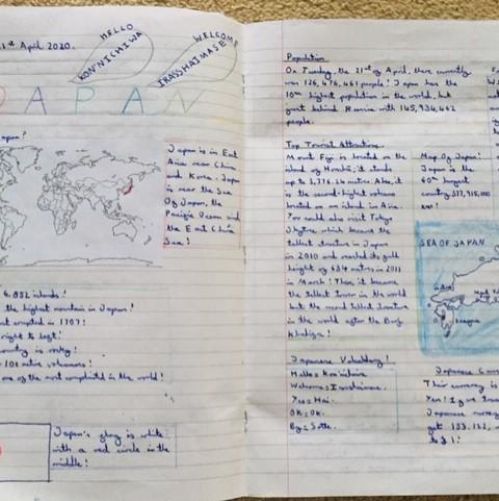 1st April 2020.
HELLO
KON'NICHIWA
WELCOME
IRASSHAIMASE
JAPAN
Japan?
Japan is in East
Asia near China
and Korea. Japan
is near the Sea
Of Japan, the
Pacific Ocean and
the East China
Sea!
6,852 islands!
the highest mountain in Japan!
last erupted in 1707!
right to left!
country is rocky!
108 active volcanoes!
one of the most complicated in the world!
Japan's flag is white
with a red circle in the
middle!
Population
On Tuesday, the 21st of April, there currently
was 126,476,461 people! Japan has the
10th highest population in the world, but
just behind Russia with 145,934,462
people.
Top Tourist Attractions
Mount Fuji is located on the
island of Honshū, it stands
up to 3,776.24 metres. Also, it
is the second-highest volcano
located on an island in Asia.
You could also visit Tokyo
Skytree which became the
tallest structure in Japan
in 2010 and reached its full
height of 634 metres in 2011
in March! Then it became
the tallest tower in the world
but the second tallest structure
in the world after the Burj
Khalifa!
Map Of Japan!
Japan is the
largest
country
SEA OF JAPAN
Japanese Vocabulary!
Hello = Kon'nichiwa
Welcome = Irasshaimase
Yes = Hai
OK = OK
Japanese
Their currency is
Yen! If you
Japanese money
get 133.162
to £1!